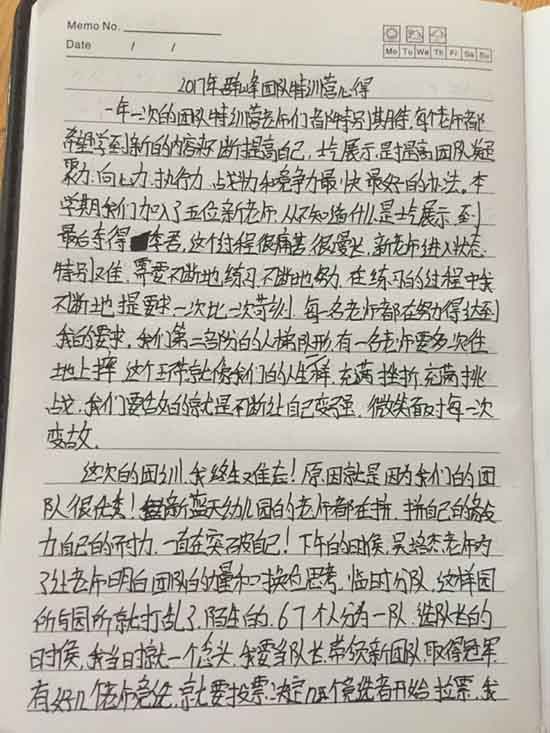 Memo No.
Date / /
Mo Tu We Th Fr Sa Su
2017年群峰团队特训营心得
一年一次的团队特训营老师们都特别期待,每个老师都
希望学到新的内容来不断提高自己,士气展示,是提高团队凝
聚力,向上力,执行力,战斗力和竞争力最快最好的办法。本
学期我们加入了五位新老师,从不知道什么是士气展示,到
最后夺得冠军,这个过程很痛苦很漫长,新老师进入状态
特别难,需要不断地练习,不断地努力,在练习的过程中我
不断地提要求一次比一次苛刻,每一名老师都在努力得达到
我的要求。我们第二部份的人梯队形,有一名老师要多次往
地上摔,这个环节就像我们的人生一样,充满挫折,充满挑
战,我们要做的就是不断让自己变强,微笑面对每一次
变故。
这次的团训,我终生难忘!原因就是因为我们的团
队很优秀!蓝天幼儿园的老师都在拼,拼自己的
力自己的耐力,一直在突破自己!下午的时候,吴老师为
了让老师明白团队的力量和换位思考,临时分队,这样园
所与园所就打乱了,陌生的,67个人分为一队,选队长的
时候,我当时就一个念头,我要当队长,带领新团队,取得冠军,
有好几个老师竞选,就要投票决定,几个竞选者开始拉票,我